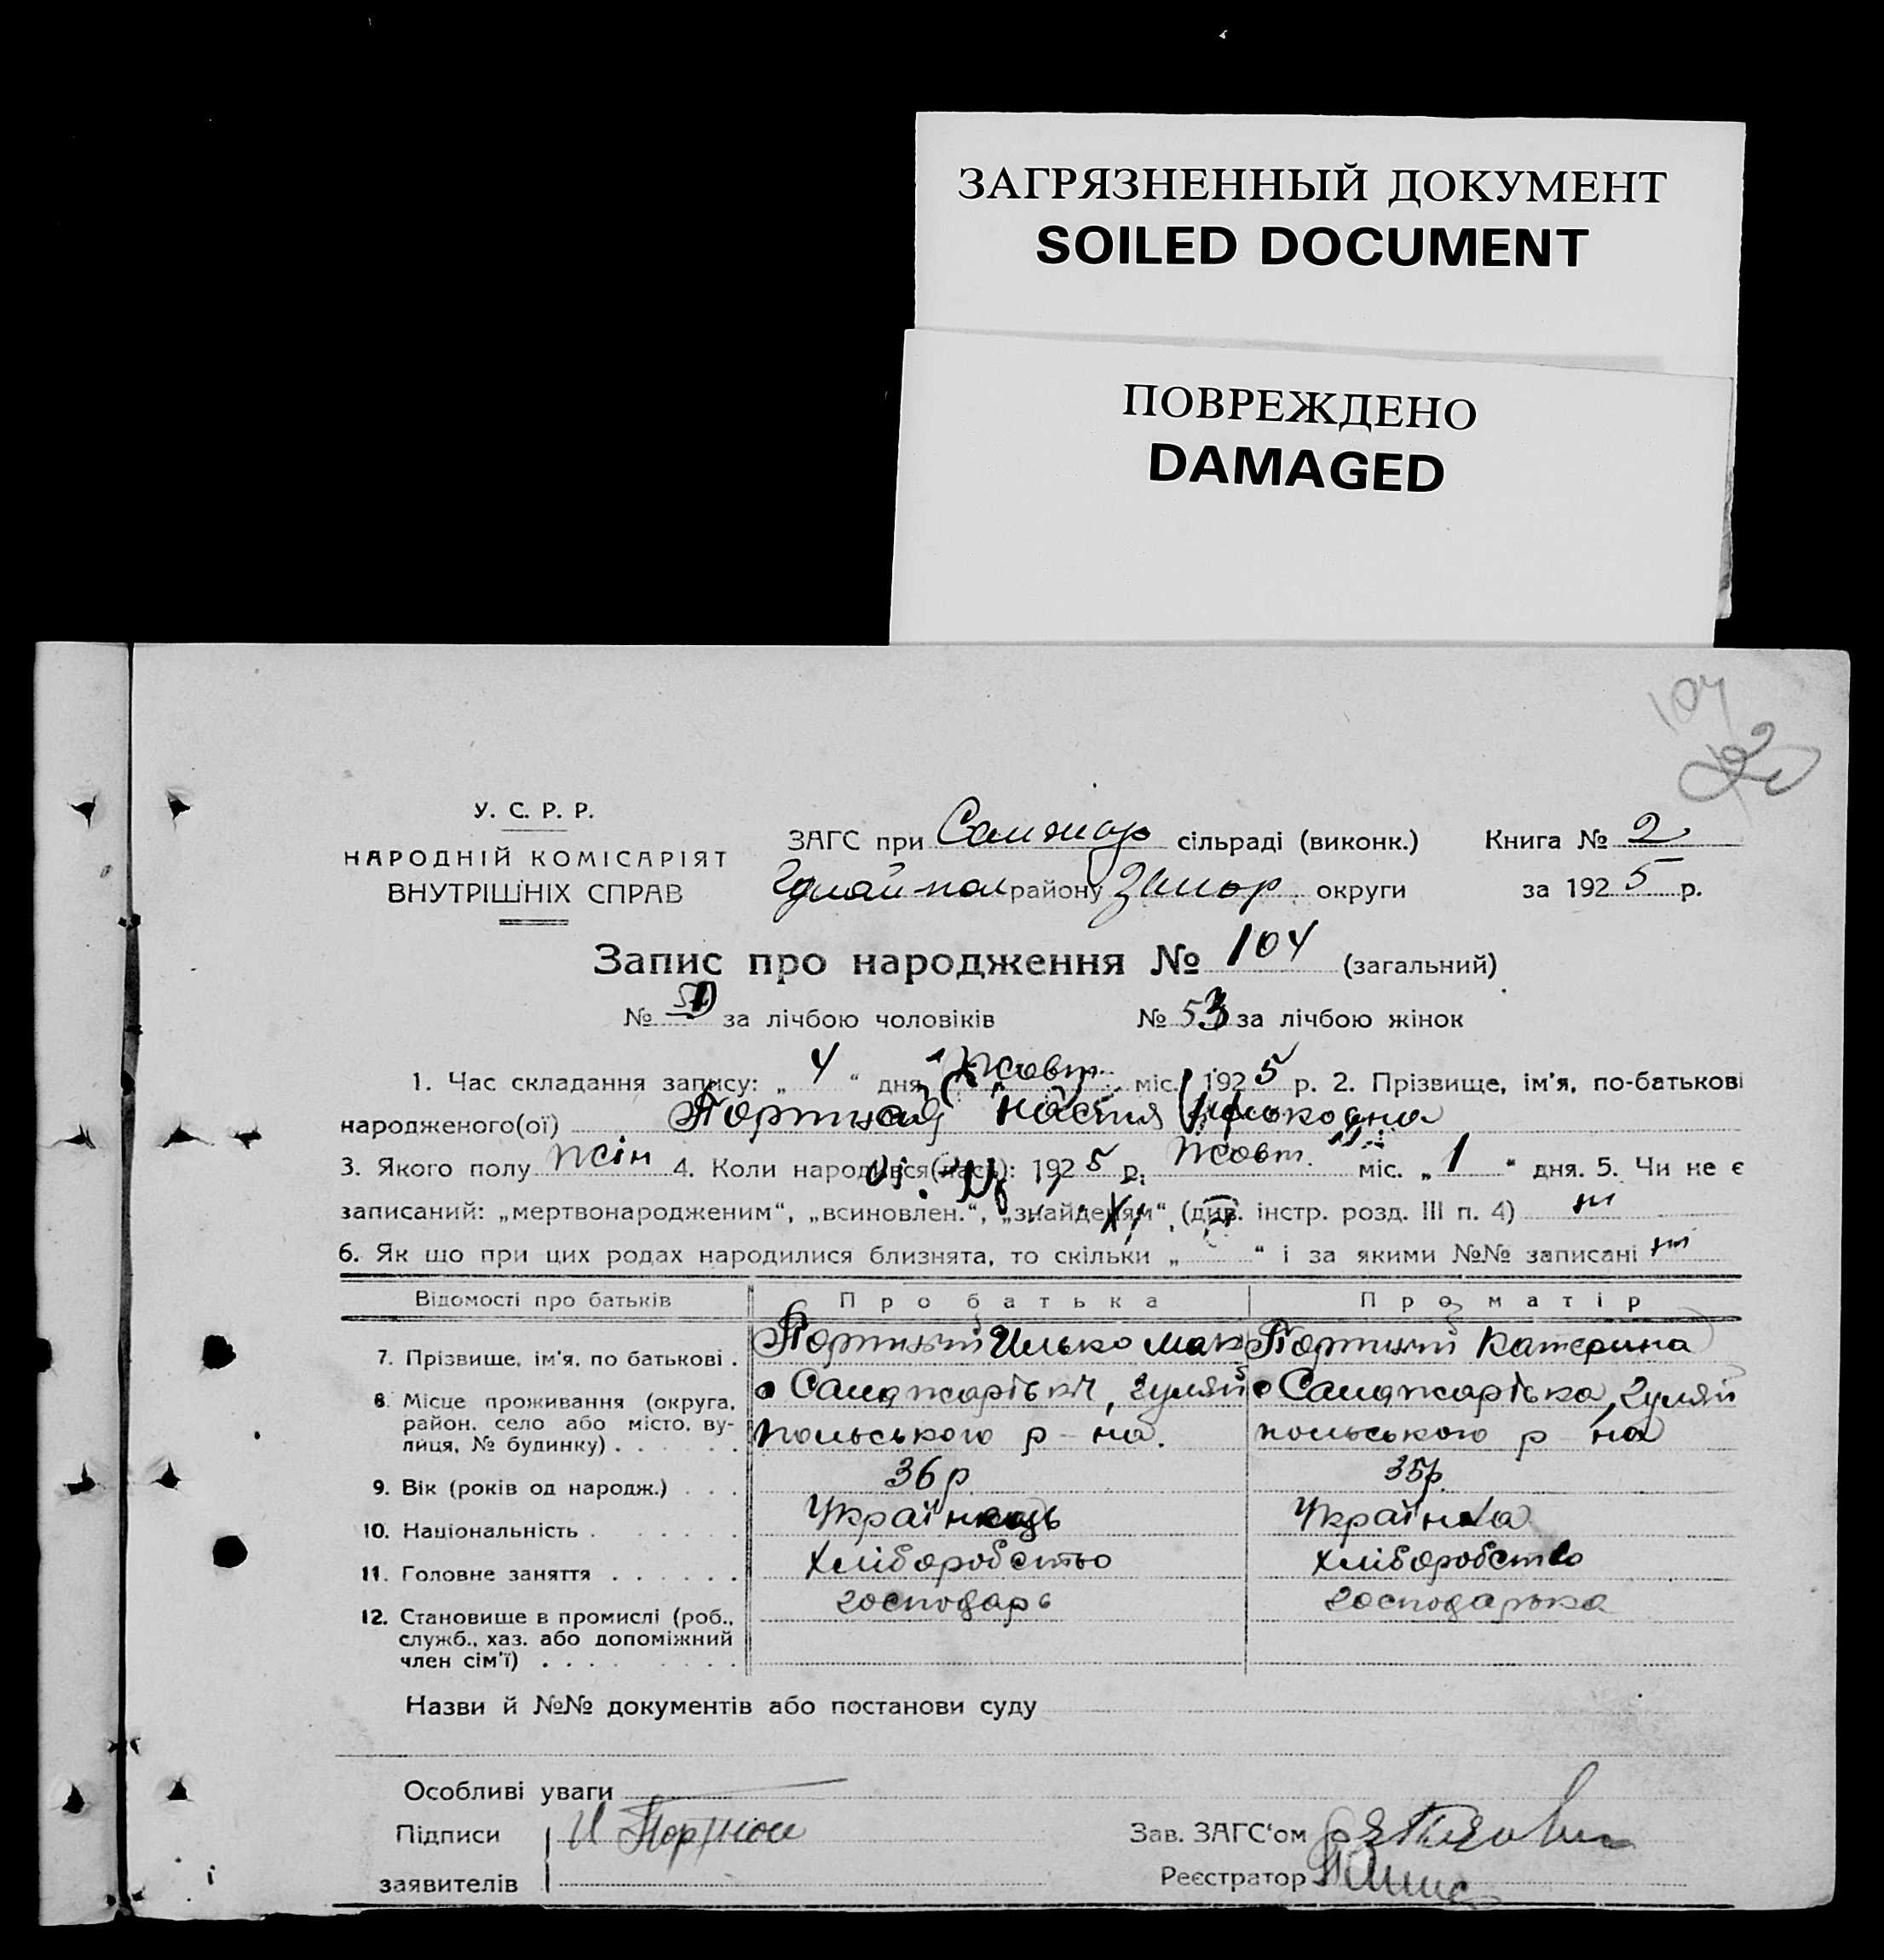 ЗАГРЯЗНЕННЫЙ ДОКУМЕНТ
SOILED DOCUMENT
ПОВРЕЖДЕНО
DAMAGED
104
У. С. Р. Р.
НАРОДНІЙ КОМІСАРІЯТ
ВНУТРІШНІХ СПРАВ
ЗАГС при Санжар сільраді (виконк.) Книга № 2
Гуляй-пол району Запор. округи за 1925 р.
Запис про народження № 104 (загальний)
№ за лічбою чоловіків № 53 за лічбою жінок
1. Час складання запису: „ 4 “ дня Жовт. міс. 1925 р. 2. Прізвище, ім'я, по-батькові
народженого(ої) Портная Настя Ільковна
3. Якого полу жін 4. Коли народився(лась): 1925 р. Жовт. міс. „ 1 “ дня. 5. Чи не є
записаний: „мертвонародженим“, „всиновлен.“, „знайденям“, (див. інстр. розд. III п. 4) ні
6. Як що при цих родах народилися близнята, то скільки „ “ і за якими №№ записані ні
Відомості про батьків Про батька Про матір
7. Прізвище, ім'я, по батькові . Портний Илько Мак Портний Катерина
8. Місце проживання (округа, район, село або місто, вулиця, № будинку) . . . . . .
с Санджарівки, Гуляй с Санджарівка, Гуляй
польського р-на. польського р-на
9. Вік (років од народж.) . . . 36 р. 35 р.
10. Національність . . . . . . . Українець Українка
11. Головне заняття . . . . . . Хліборобство Хліборобство
12. Становище в промислі (роб., служб., хаз. або допоміжний член сім'ї) . . . . . . . . господарь господарька
Назви й №№ документів або постанови суду
Особливі уваги
Підписи И Портной Зав. ЗАГС'ом
заявителів Реєстратор